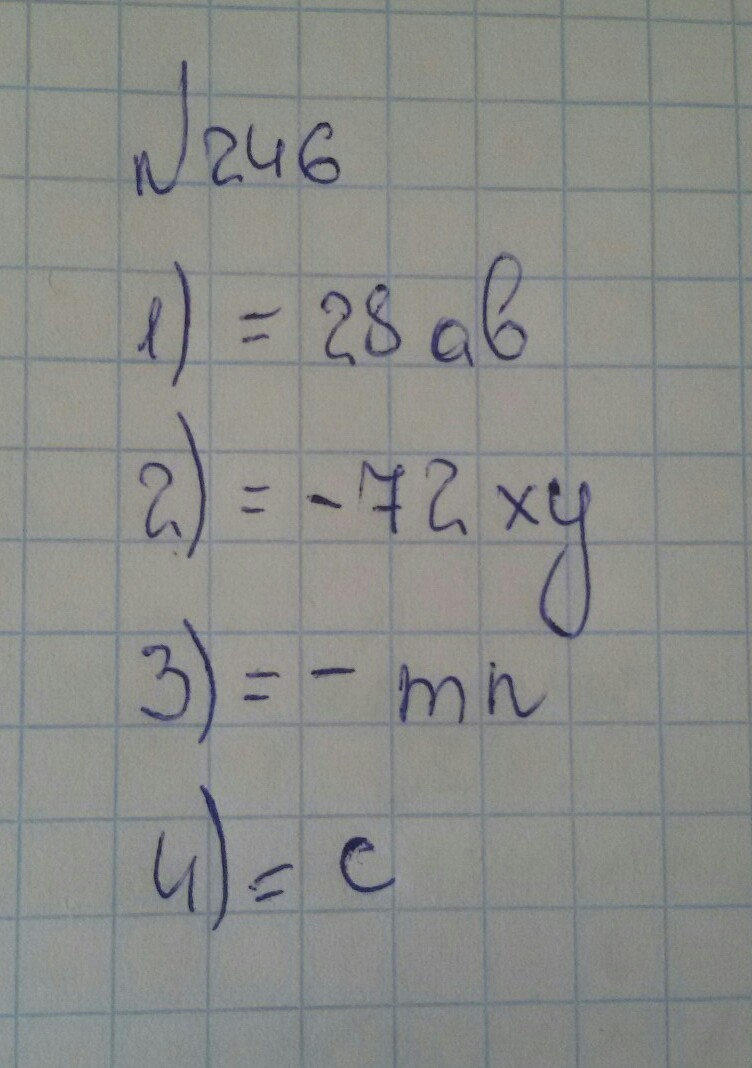 №246
1) = 28 ab
2) = -72 xy
3) = - mn
4) = c